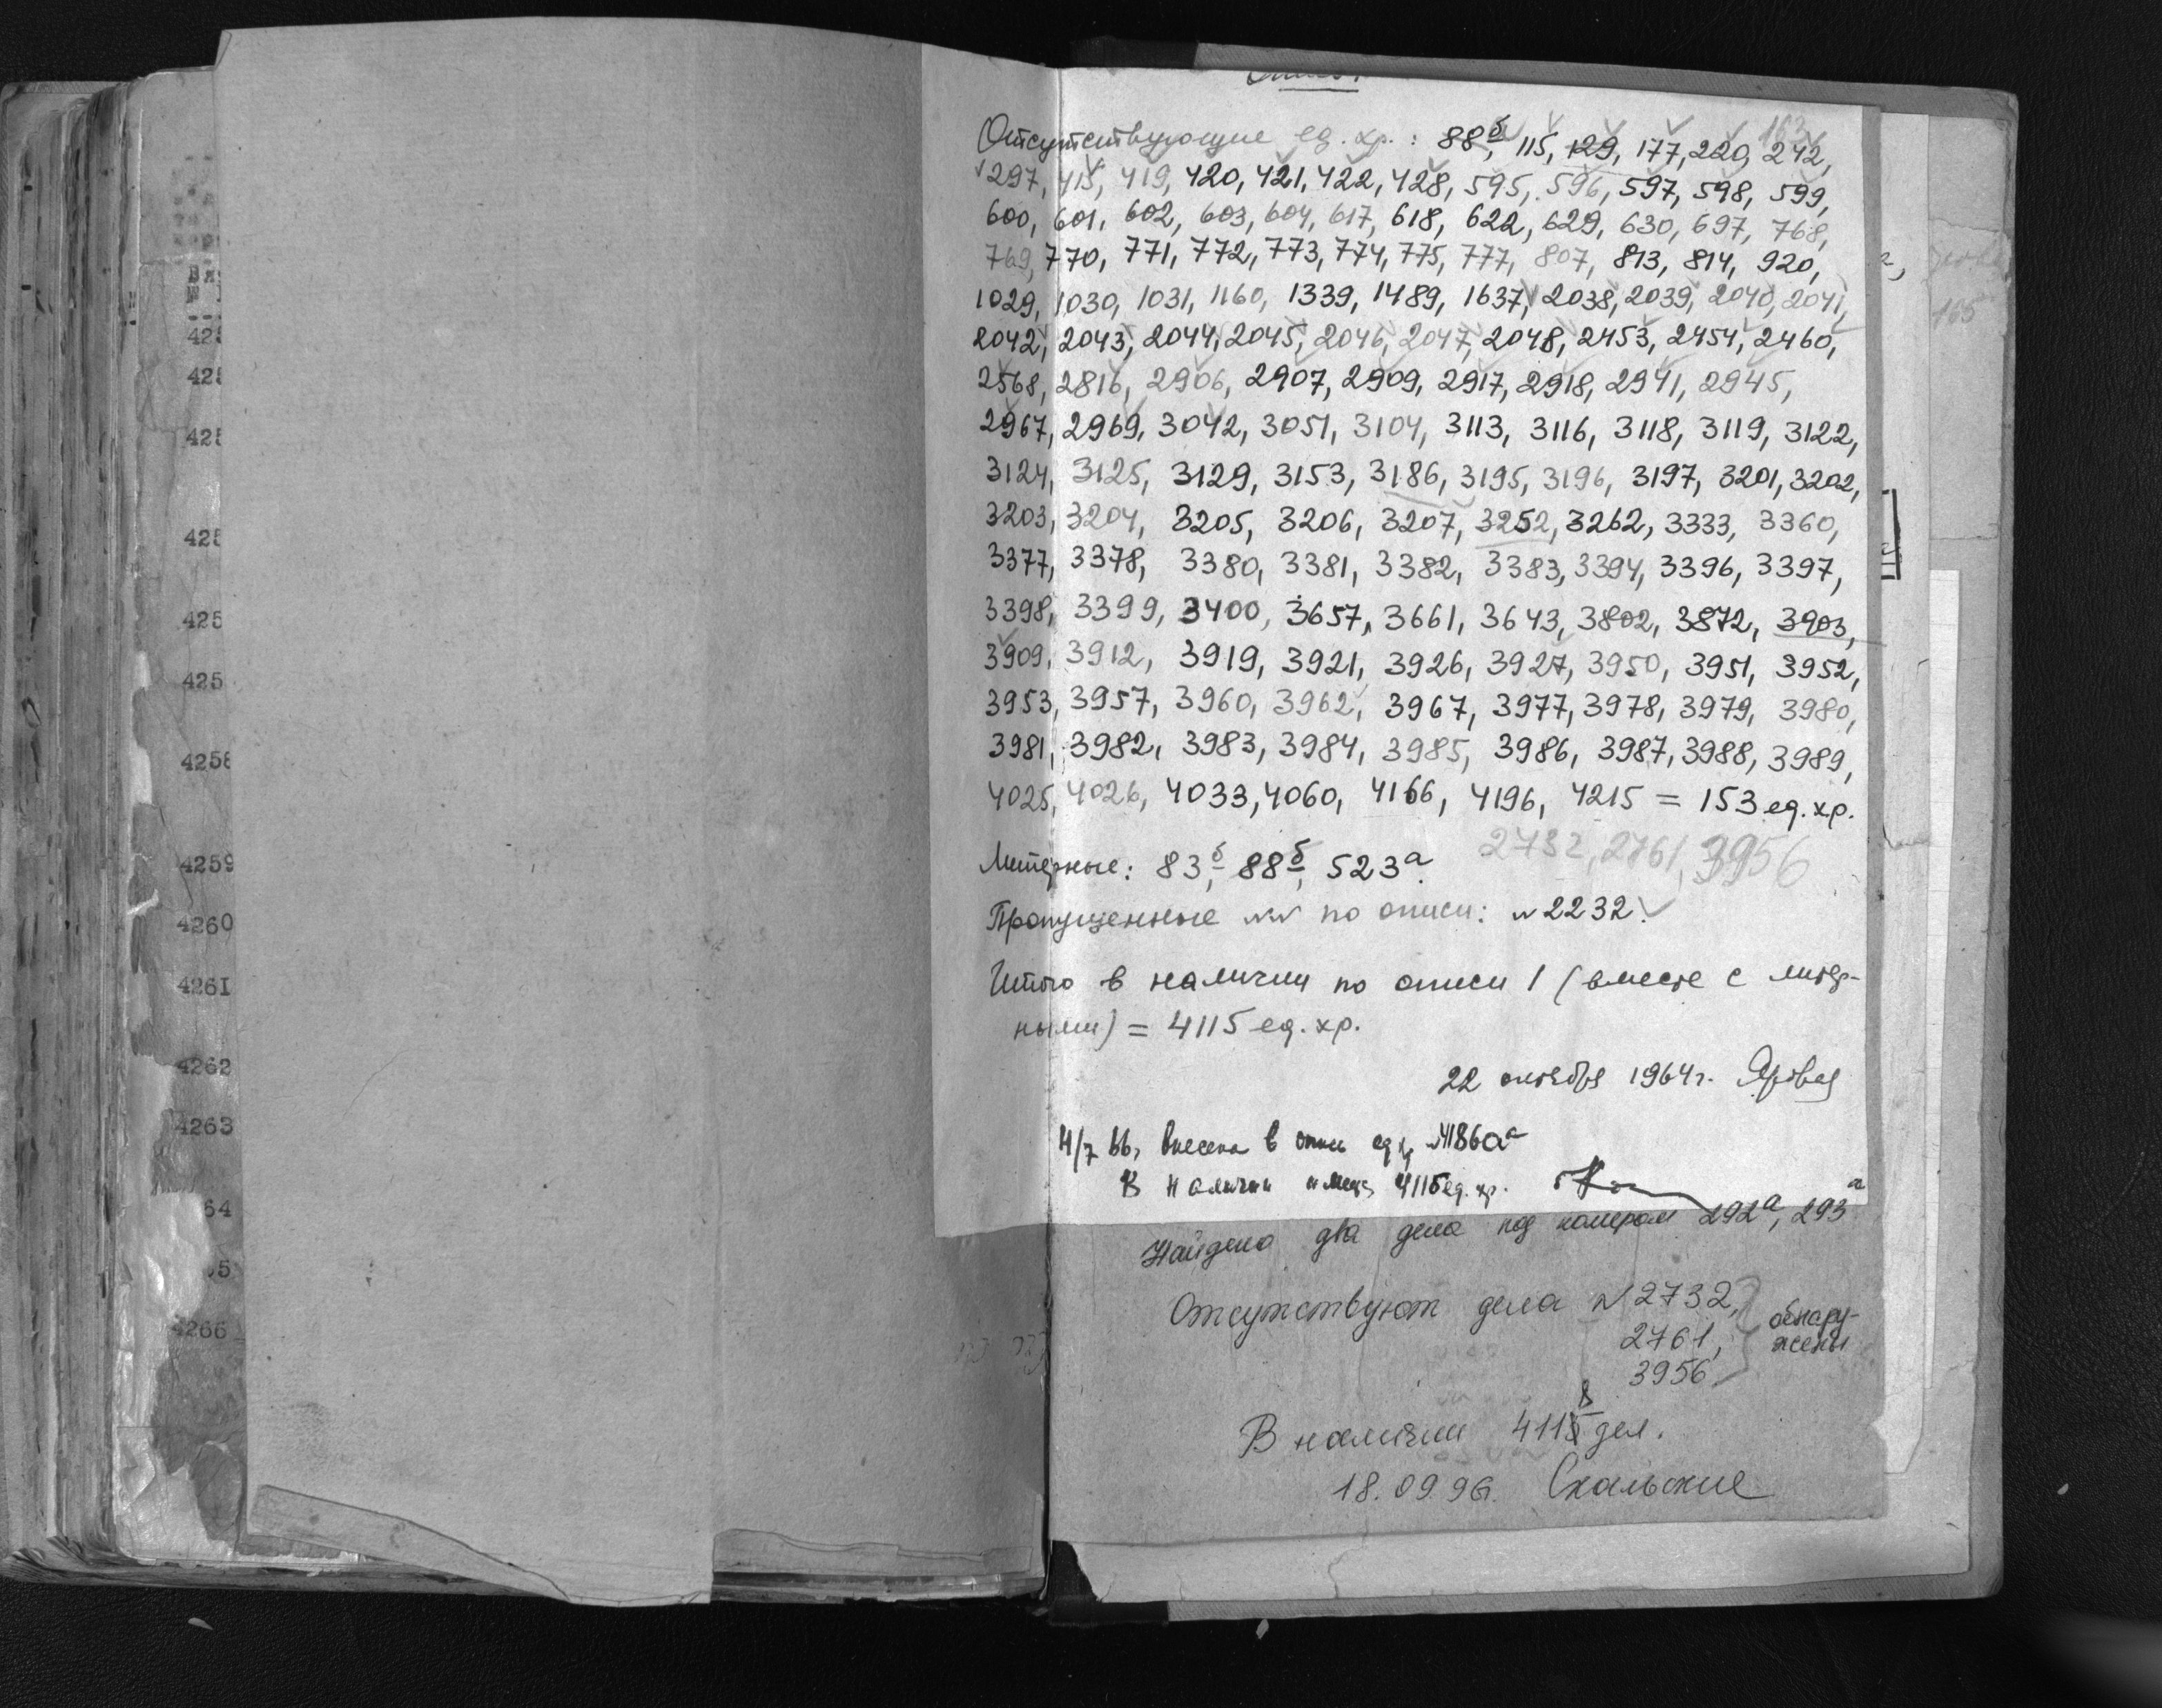 163
Отсутствующие ед. хр.: 88б, 115, 129, 177, 220, 242,
297, 415, 419, 420, 421, 422, 428, 595, 596, 597, 598, 599,
600, 601, 602, 603, 604, 617, 618, 622, 629, 630, 697, 768,
769, 770, 771, 772, 773, 774, 775, 777, 807, 813, 814, 920,
1029, 1030, 1031, 1160, 1339, 1489, 1637, 2038, 2039, 2040, 2041,
2042, 2043, 2044, 2045, 2046, 2047, 2048, 2453, 2454, 2460,
2568, 2816, 2906, 2907, 2909, 2917, 2918, 2941, 2945,
2967, 2969, 3042, 3051, 3104, 3113, 3116, 3118, 3119, 3122,
3124, 3125, 3129, 3153, 3186, 3195, 3196, 3197, 3201, 3202,
3203, 3204, 3205, 3206, 3207, 3252, 3262, 3333, 3360,
3377, 3378, 3380, 3381, 3382, 3383, 3394, 3396, 3397,
3398, 3399, 3400, 3657, 3661, 3643, 3802, 3872, 3903,
3909, 3912, 3919, 3921, 3926, 3927, 3950, 3951, 3952,
3953, 3957, 3960, 3962, 3967, 3977, 3978, 3979, 3980,
3981, 3982, 3983, 3984, 3985, 3986, 3987, 3988, 3989,
4025, 4026, 4033, 4060, 4166, 4196, 4215 = 153 ед. хр.
2732, 2761, 3956
Литерные: 83б, 88б, 523а.
Пропущенные №№ по описи: № 2232.
Итого в наличии по описи 1 (вместе с литер-
ными) = 4115 ед. хр.
22 октября 1964 г.
внесена в опись ед. хр. № 4186а
В наличии 4115 ед. хр.
Найдено два дела под номерам 292а, 293а
Отсутствуют дела № 2732,
2761,
3956
обнару-
жены
В наличии 4118 дел.
18.09.96г. Скальские
4259
4260
4261
4262
4263
4266
165